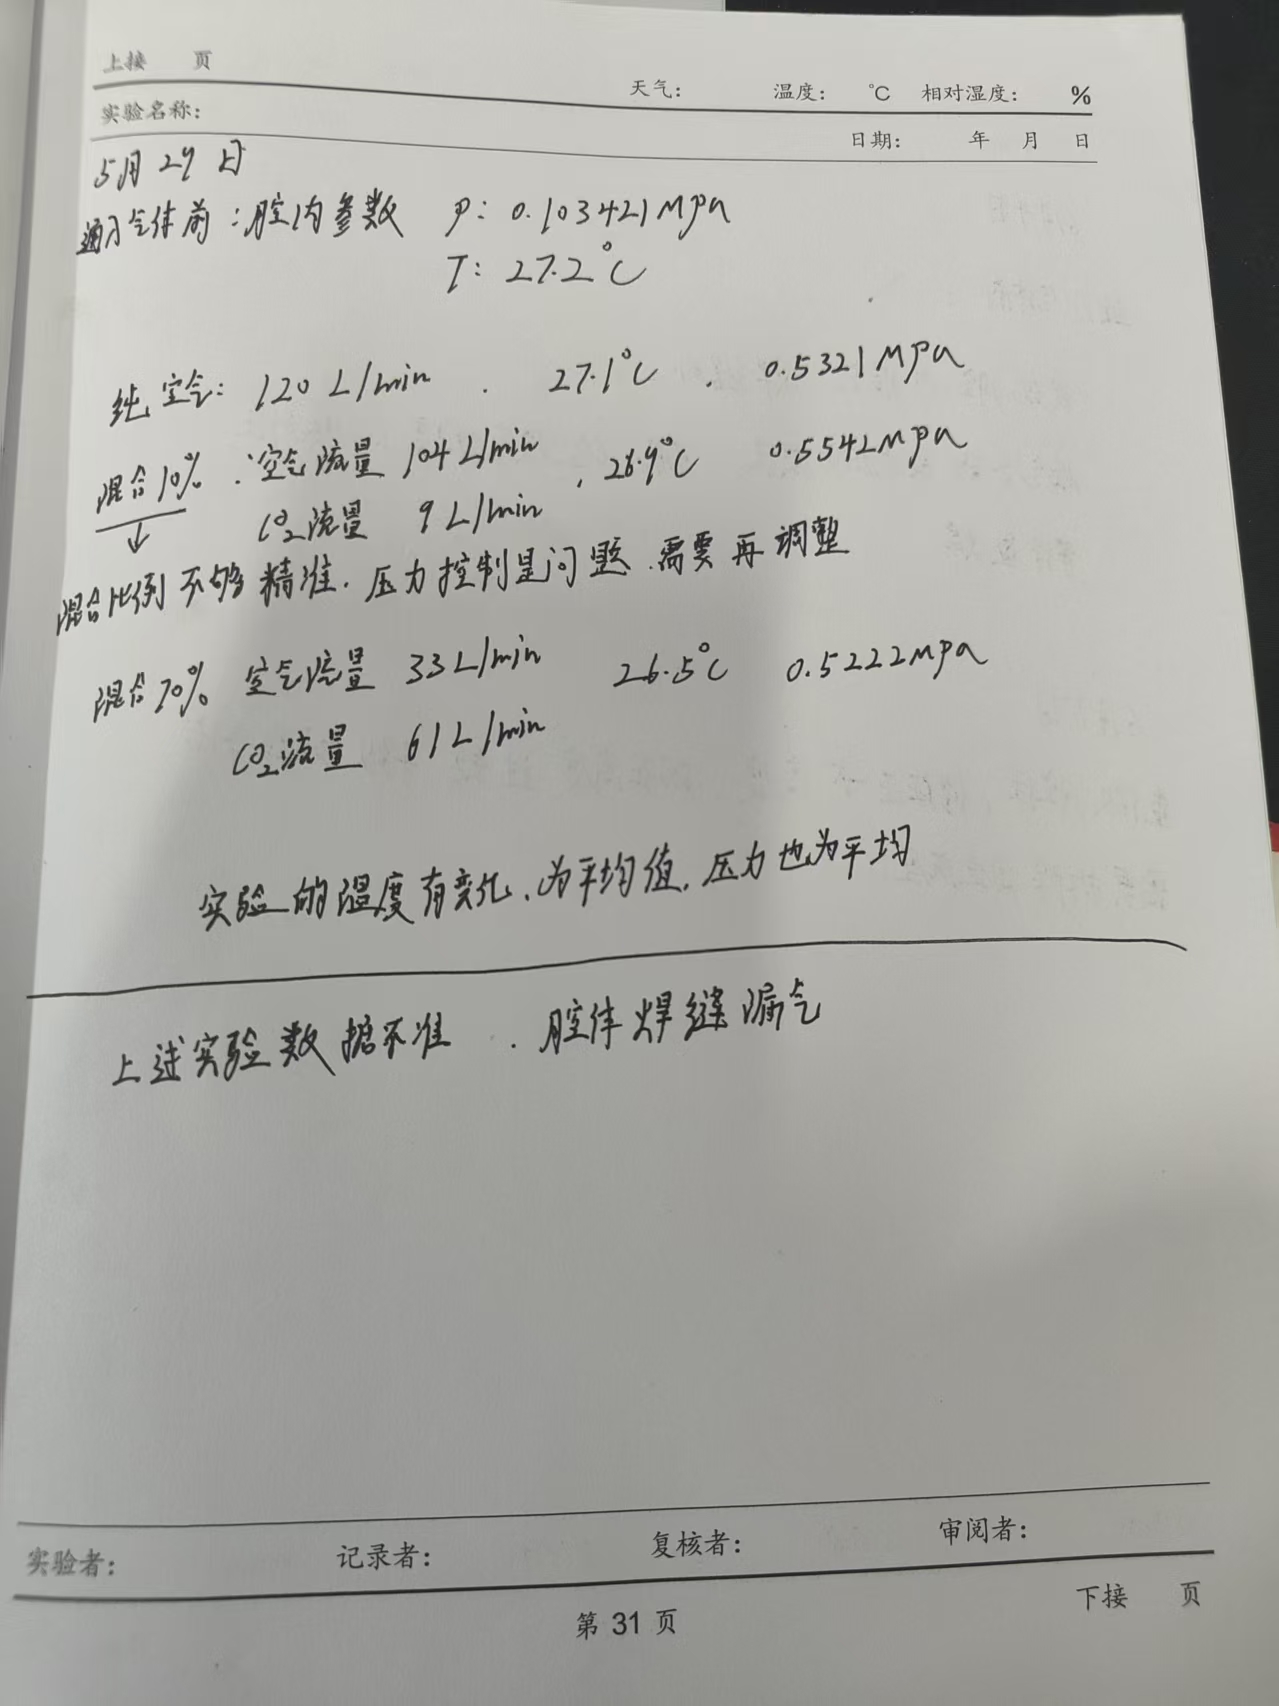 上接 页
天气: 温度: ℃ 相对湿度: %
实验名称:
日期: 年 月 日
5月29日
通入气体前:腔内参数 P: 0.103421MPa
T: 27.2℃
纯空气: 120 L/min . 27.1℃ . 0.5321MPa
混合10% :空气流量 104 L/min , 26.9℃ 0.5542MPa
CO2流量 9 L/min
↓
混合比例不够精准.压力控制是问题.需要再调整
混合70% 空气流量 33L/min 26.5℃ 0.5222MPa
CO2流量 61L/min
实验的温度有变化.为平均值.压力也为平均
上述实验数据不准 . 腔体焊缝漏气
实验者: 记录者: 复核者: 审阅者:
下接 页
第 31 页